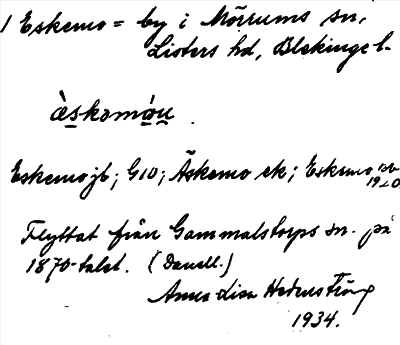 1 Eskemo = by i Mörrums sn,
Listers hd, Blekinge l.
àskomóu .
Eskemo jb; G10; Äskemo ek; Eskemo
1920
Flyttat från Gammalstorps sn. på
1870-talet. (Danell.)
Anna Lisa
1934.